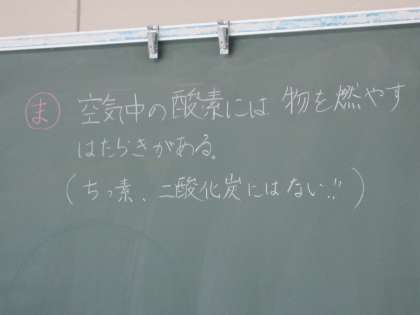 ま 空気中の酸素には 物を燃やす
はたらきがある。
(ちっ素、二酸化炭にはない!!)